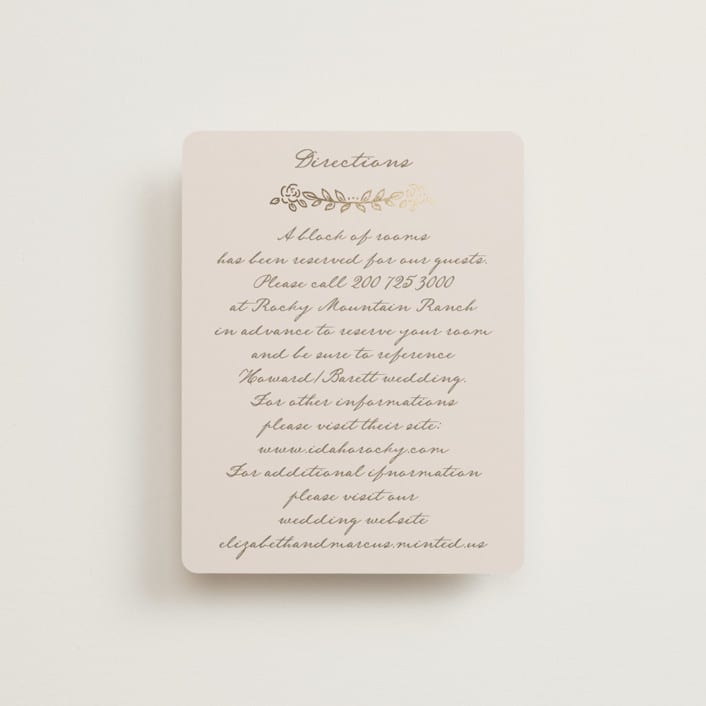 Directions
A block of rooms
has been reserved for our guests.
Please call 200 725 3000
at Rocky Mountain Ranch
in advance to reserve your room
and be sure to reference
Howard/Barett wedding.
For other informations
please visit their site:
www.idahorocky.com
For additional ifnormation
please visit our
wedding website
elizabethandmarcus.minted.us